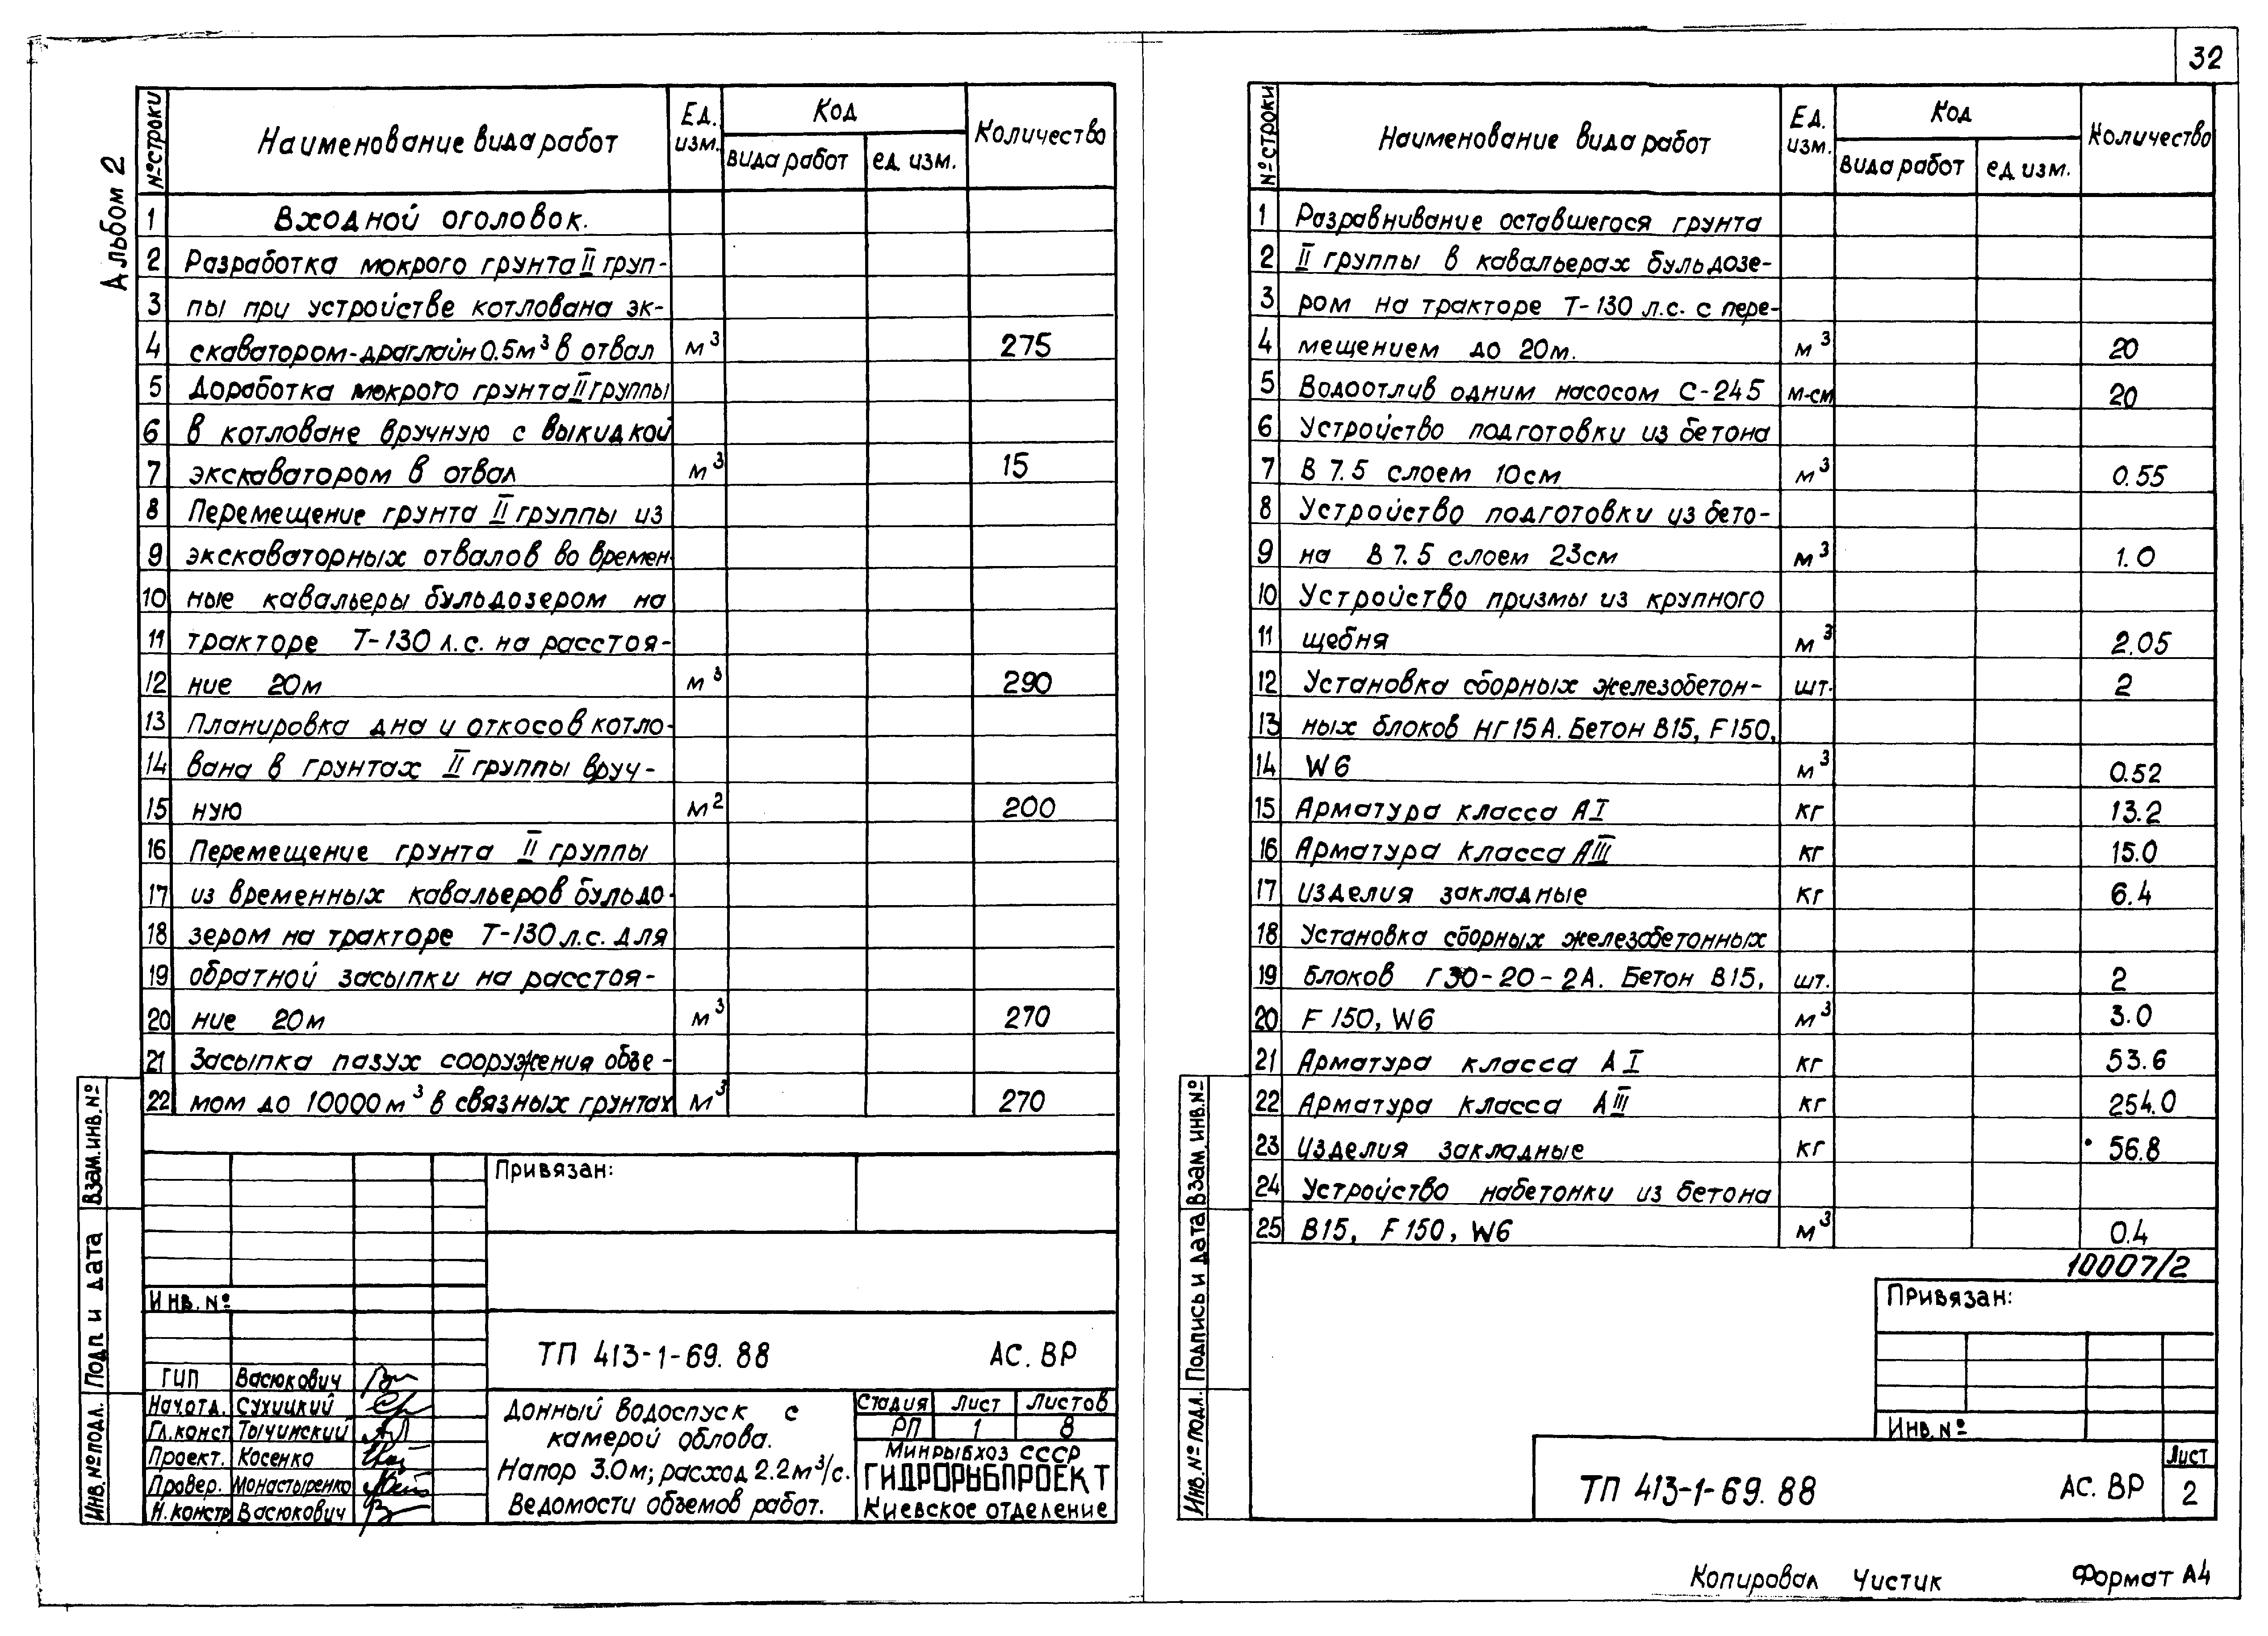 32
Альбом 2
№ строки | Наименование вида работ | Ед. изм. | Код | Количество
вида работ | ед. изм.
1 Входной оголовок.
2 Разработка мокрого грунта II груп-
3 пы при устройстве котлована эк-
4 скаватором-драглайн 0.5м³ в отвал м³ 275
5 Доработка мокрого грунта II группы
6 в котловане вручную с выкидкой
7 экскаватором в отвал м³ 15
8 Перемещение грунта II группы из
9 экскаваторных отвалов во времен-
10 ные кавальеры бульдозером на
11 тракторе Т-130 л.с. на расстоя-
12 ние 20м м³ 290
13 Планировка дна и откосов котло-
14 вана в грунтах II группы вруч-
15 ную м² 200
16 Перемещение грунта II группы
17 из временных кавальеров бульдо-
18 зером на тракторе Т-130 л.с. для
19 обратной засыпки на расстоя-
20 ние 20м м³ 270
21 Засыпка пазух сооружения объе-
22 мом до 10000 м³ в связных грунтах м³ 270
Привязан:
Инв. №
ТП 413-1-69.88 АС. ВР
ГИП Васюкович
Нач.отд. Сухицкий
Гл.конст. Тычинский
Проект. Косенко
Провер. Монастыренко
Н.констр. Васюкович
Донный водоспуск с
камерой облова.
Напор 3.0м; расход 2.2 м³/с.
Ведомости объемов работ.
Стадия Лист Листов
РП 1 8
Минрыбхоз СССР
ГИДРОРЫБПРОЕКТ
Киевское отделение
Взам. инв. №
Подп и дата
Инв. № подл.
№ строки | Наименование вида работ | Ед. изм. | Код | Количество
вида работ | ед. изм.
1 Разравнивание оставшегося грунта
2 II группы в кавальерах бульдозе-
3 ром на тракторе Т-130 л.с. с пере-
4 мещением до 20м. м³ 20
5 Водоотлив одним насосом С-245 м-см 20
6 Устройство подготовки из бетона
7 В 7.5 слоем 10см м³ 0.55
8 Устройство подготовки из бето-
9 на В 7.5 слоем 23см м³ 1.0
10 Устройство призмы из крупного
11 щебня м³ 2.05
12 Установка сборных железобетон- шт. 2
13 ных блоков НГ15А. Бетон В15, F150,
14 W6 м³ 0.52
15 Арматура класса АI кг 13.2
16 Арматура класса АIII кг 15.0
17 изделия закладные кг 6.4
18 Установка сборных железобетонных
19 блоков Г30-20-2А. Бетон В15, шт. 2
20 F150, W6 м³ 3.0
21 Арматура класса АI кг 53.6
22 Арматура класса АIII кг 254.0
23 Изделия закладные кг 56.8
24 Устройство набетонки из бетона
25 В15, F150, W6 м³ 0.4
10007/2
Привязан:
Инв. №
ТП 413-1-69.88 АС. ВР
Лист
2
Взам. инв. №
Подпись и дата
Инв. № подл.
Копировал Чистик Формат А4